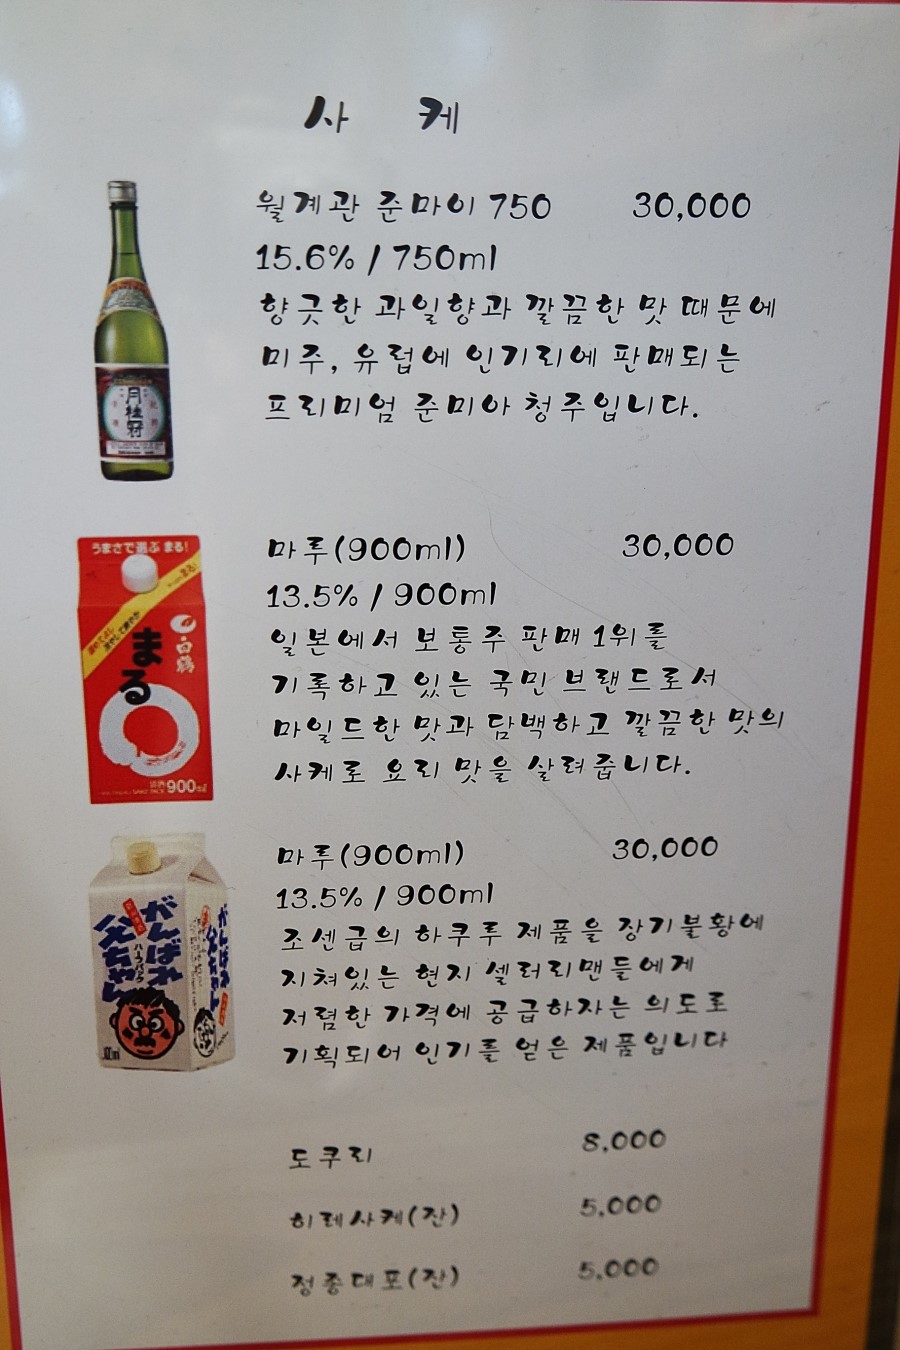 사 케
월계관 준마이 750 30,000
15.6% / 750ml
향긋한 과일향과 깔끔한 맛 때문에
미주, 유럽에 인기리에 판매되는
프리미엄 준미아 청주입니다.
月桂冠
마루(900ml) 30,000
13.5% / 900ml
일본에서 보통주 판매 1위를
기록하고 있는 국민 브랜드로서
마일드한 맛과 담백하고 깔끔한 맛의
사케로 요리 맛을 살려줍니다.
うまさで選ぶ まる!
白鶴
まる
900ml
마루(900ml) 30,000
13.5% / 900ml
조센급의 하쿠루 제품을 장기불황에
지쳐있는 현지 셀러리맨들에게
저렴한 가격에 공급하자는 의도로
기획되어 인기를 얻은 제품입니다
がんばれ
父ちゃん
도쿠리 8,000
히레사케(잔) 5,000
정종대포(잔) 5,000